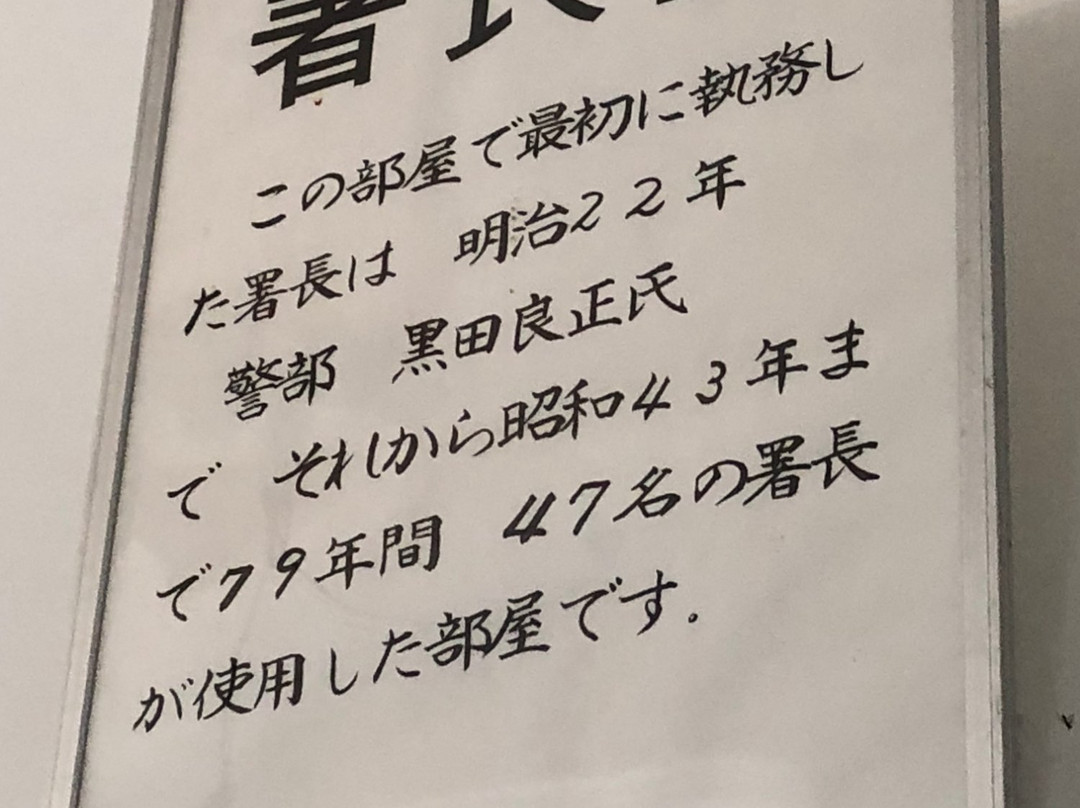 署長
この部屋で最初に執務し
た署長は　明治２２年
警部　黒田良正氏
それから昭和４３年ま
で
で７９年間　４７名の署長
が使用した部屋です.